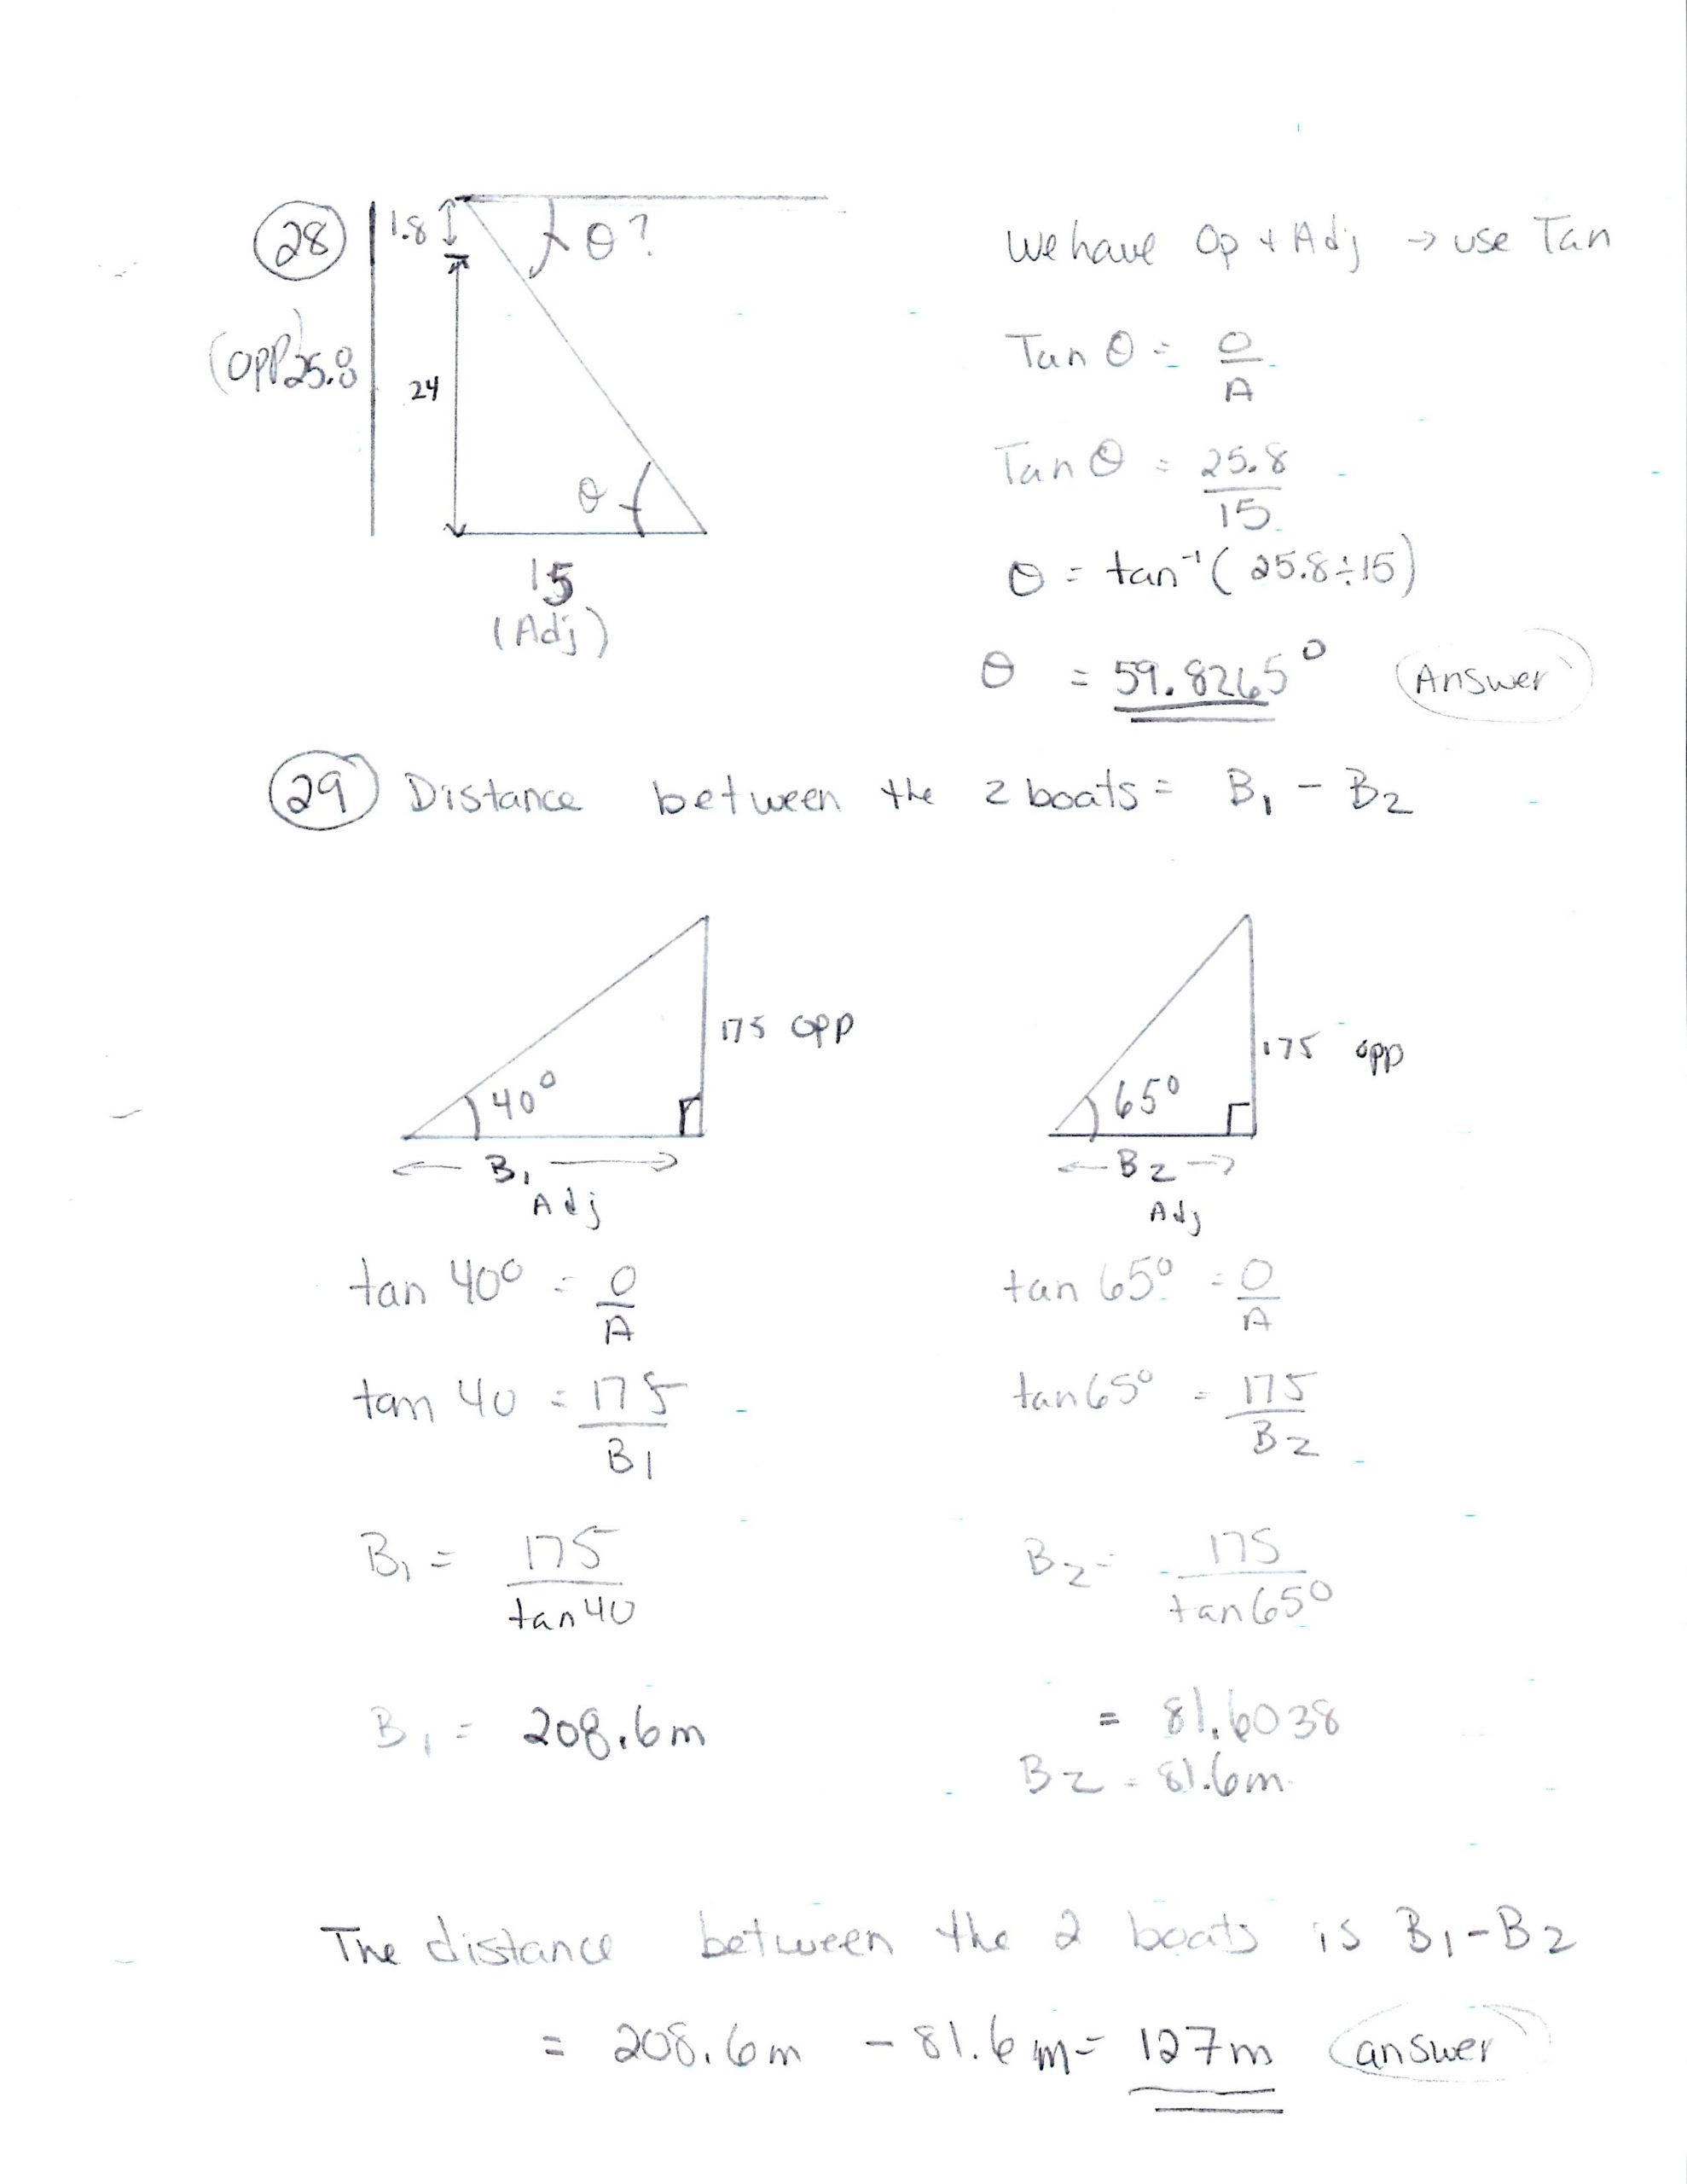 28
1.8
θ?
(OPP) 25.8
24
θ
15
(Adj)
We have Op + Adj → use Tan
Tan θ = O/A
Tan θ = 25.8/15
θ = tan⁻¹ ( 25.8÷15)
θ = 59.8265° Answer
29 Distance between the 2 boats = B₁ - B₂
175 opp
40°
B₁
Adj
175 opp
65°
B₂
Adj
tan 40° = O/A
tan 40 = 175/B₁
B₁ = 175/tan 40
B₁ = 208.6m
tan 65° = O/A
tan 65° = 175/B₂
B₂ = 175/tan 65°
= 81.6038
B₂ = 81.6m
The distance between the 2 boats is B₁ - B₂
= 208.6m - 81.6m = 127m answer